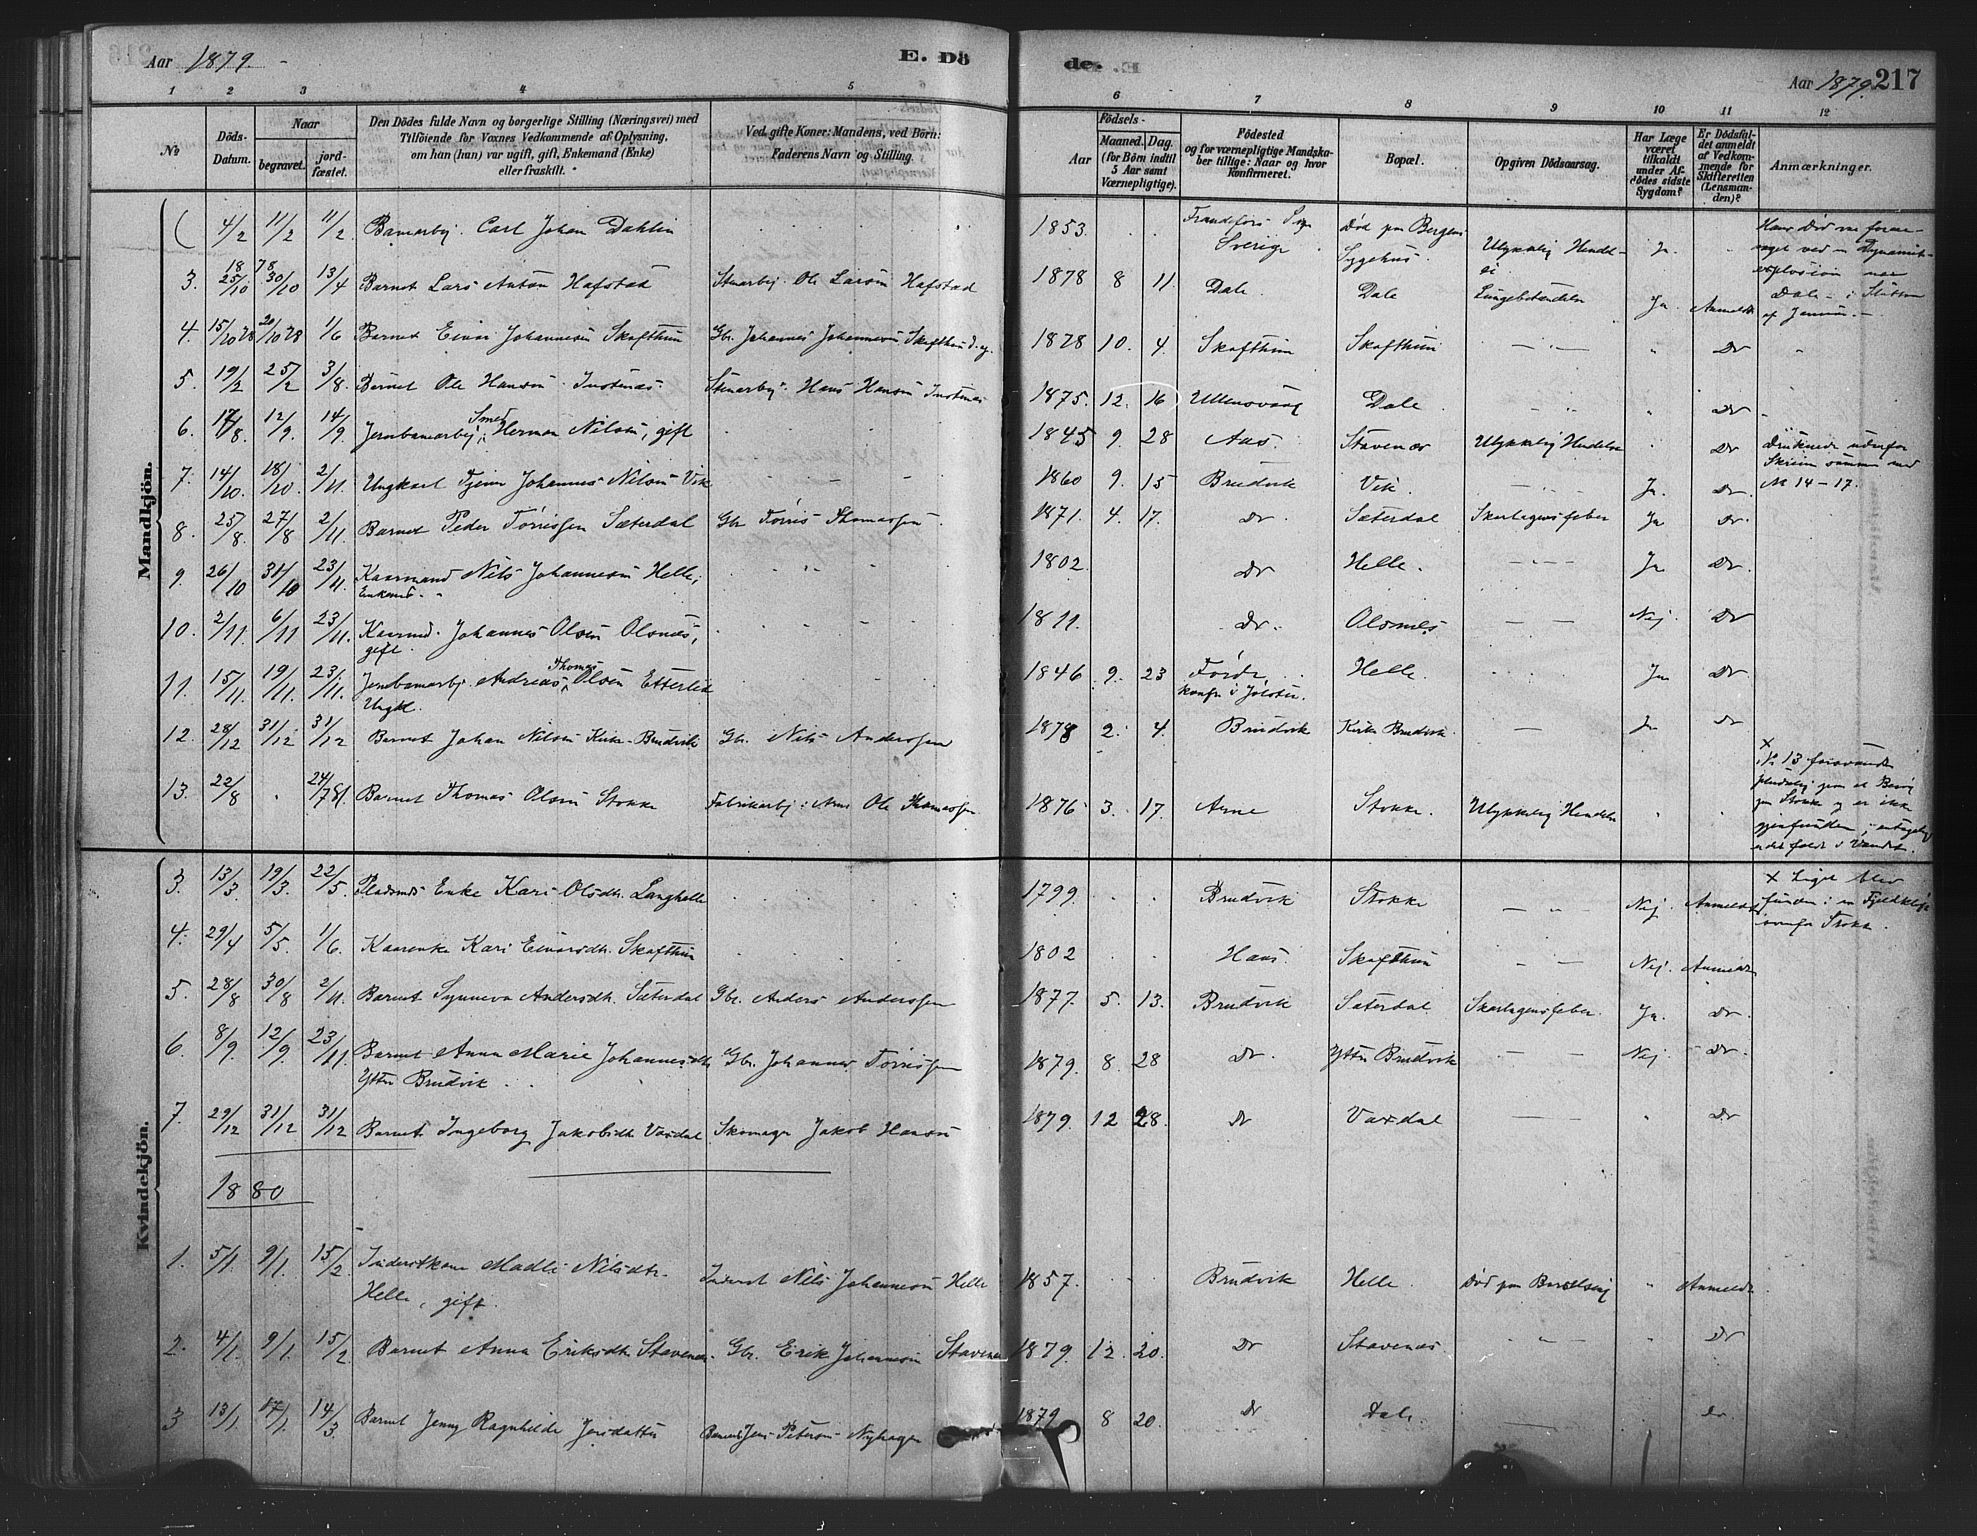 Aar 1879.
E. Dö
de.
Aar 1879.
217
1 2 3 4 5 6 7 8 9 10 11 12
No
Döds-Datum.
Naar
begravet.
jord-fæstet.
Den Dödes fulde Navn og borgerlige Stilling (Næringsvei) med
Tilföiende for Voxnes Vedkommende af Oplysning,
om han (hun) var ugift, gift, Enkemand (Enke)
eller fraskilt.
Ved gifte Koner: Mandens, ved Börn:
Faderens Navn og Stilling.
Födsels-
Aar
Maaned. Dag.
(for Börn indtil
5 Aar samt
Værnepligtige).
Födested
og for værnepligtige Mandska-
ber tillige: Naar og hvor
konfirmeret.
Bopæl.
Opgiven Dödsaarsag.
Har Læge
været
tilkaldt
under Af-
dödes sidste
Sygdom?
Er Dödsfal-
det anmeldt
af Vedkom-
mende for
Skifteretten
(Lensman-
den)?
Anmærkninger.
Mandkjön.
4/2 11/2 11/2 Banearbj. Carl Johan Dahlin 1853. Sverige Död paa Bergens Sygehus. Ulykkelig Hendelse Ja.
3. 18 25/10 78 30/10 13/4 Barnet Lars Anton Hafstad Stenarbej. Ole Larsen Hafstad 1878 8 11 Dale. Dale Lungebetændelse Ja Anmeldt
4. 15/10 78 20/10 78 1/6 Barnet Einar Johannesen Skafthun Gbr. Johannes Johannesen Skafthun 1878 10. 4. Skafthun Skafthun " Do
5. 19/2 25/2 3/8 Barnet Ole Hansen Instenæs Stenarbej. Hans Hansen Instenæs 1875. 12. 16 Ullensvang Dale " Do
6. 17/8 12/9. 14/9. Jernbanearbej. Smed Herman Nilsen, gift 1845 9. 28 Aas Stavenæs Ulykkelig Hendelse Do
7. 14/10. 18/10. 2/11. Ungkarl Tjener Johannes Nilsen Vik 1860 9. 15 Brudvik Vik. Ja Do
8. 25/8. 27/8 2/11. Barnet Peder Törrissen Sæterdal Gbr Törris Thomassen 1871. 4. 17. Do Sæterdal Skarlagensfeber Ja Do
9. 26/10 31/10 23/11. Kaarmand Nils Johannesen Helle, Enkemd. 1802 Do Helle. Ja Do
10. 2/11 6/11 23/11. Kaarmd. Johannes Olsen Olsnæs, gift. 1811. Do. Olsnæs Nej. Do
11. 15/11. 19/11. 23/11. Jernbanearbj. Andreas Thomas Olsen Etterlid Ungkl. 1846 9. 23 Förde konfr i Jölster. Helle. Ja Do
12. 28/12 31/12 31/12 Barnet Johan Nilsen Kirke-Brudvik Gbr. Nils Anderssen 1878 2. 4. Brudvik Kirke Brudvik. Ja Do
13. 22/8 24/7 81. Barnet Thomas Olsen Stokke Fabrikarbj: Arne Ole Thomassen 1876 3. 17. Arne Stokke. Ulykkelig Hendelse
Hans Död var foraar-
saget ved en Dynamit-
explosion nær
Dale
Druknede udenfor
Skreien sammen med
No 14-17.
x
No 13 forsvandt
pludselig
paa Stokke og er ikke
gjenfunden,
x Liget blev
funden i en Fjeldkløft
ovenfor Stokke.
Kvindekjön.
3. 13/3 19/3. 22/5. Pladsmds Enke Kari Olsdtr. Langhelle 1799. Brudvik Stokke Nej. Anmeldt
4. 29/4 5/5. 1/6. Kaarenke Kari Einarsdtr. Skafthun 1802 Haus. Skafthun Nej. Anmeldt
5. 28/8 30/8 2/11. Barnet Synneva Andersdtr. Sæterdal Gbr. Anders Anderssen 1877. 5. 13. Brudvik Sæterdal Skarlagensfeber. Ja. Do.
6. 8/9. 12/9. 23/11. Barnet Anna Marie Johannesdtr Ytre Brudvik Gbr. Johannes Törrissen 1879. 8. 28 Do. Ytre Brudvik Nej. Do.
7. 29/12 31/12 31/12 Barnet Ingeborg Jakobsdtr Vaxdal Skomager Jakob Hansen 1879. 12 28. Do Vaxdal Do
1880
1. 5/1. 9/1. 15/2. Inderstkone Madli Nilsdtr. Helle, gift. Inderst Nils Johannesen Helle 1857. Brudvik Helle. Död paa Barselseng " Anmeldt
2. 4/1. 9/1. 15/2. Barnet Anna Eriksdtr. Stavenæs Gbr. Erik Johannesen Stavenæs 1879. 12. 20. Do Stavenæs Do
3 13/1. 17/1. 14/3. Barnet Jenny Ragnhilde Jensdatter Jens Petersen Nyhagen 1879 8 20. Do Dale. Do